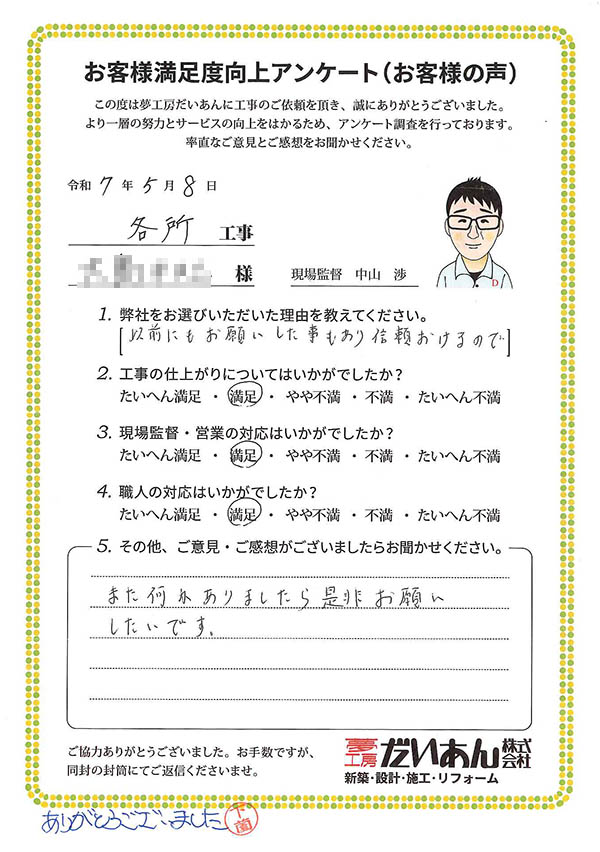 お客様満足度向上アンケート(お客様の声)
この度は夢工房だいあんに工事のご依頼を頂き、誠にありがとうございました。
より一層の努力とサービスの向上をはかるため、アンケート調査を行っております。
率直なご意見とご感想をお聞かせください。
令和 7 年 5 月 8 日
各所 工事
様 現場監督 中山 渉
D
1. 弊社をお選びいただいた理由を教えてください。
[以前にもお願いした事もあり信頼おけるので]
2. 工事の仕上がりについてはいかがでしたか?
たいへん満足 ・ 満足 ・ やや不満 ・ 不満 ・ たいへん不満
3. 現場監督・営業の対応はいかがでしたか?
たいへん満足 ・ 満足 ・ やや不満 ・ 不満 ・ たいへん不満
4. 職人の対応はいかがでしたか?
たいへん満足 ・ 満足 ・ やや不満 ・ 不満 ・ たいへん不満
5. その他、ご意見・ご感想がございましたらお聞かせください。
また何かありましたら是非お願い
したいです。
ご協力ありがとうございました。お手数ですが、
同封の封筒にてご返信くださいませ。
夢工房 だいあん 株式会社
新築・設計・施工・リフォーム
ありがとうございました 下薗